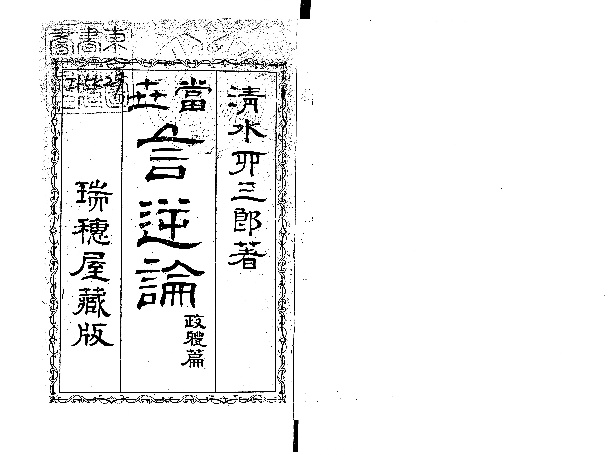 清水卯三郎著
當世言逆論
政體篇
瑞穗屋藏版